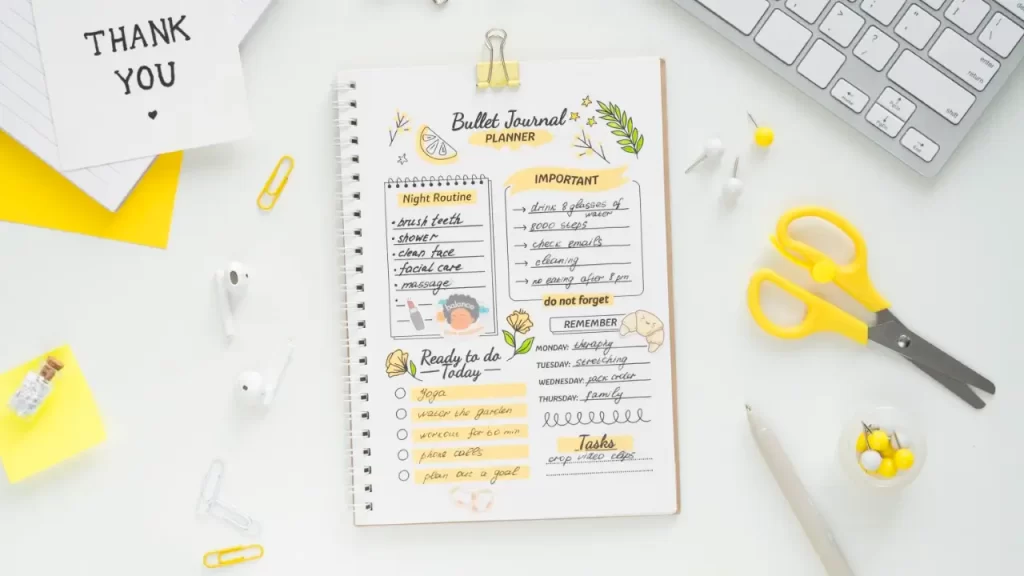 THANK
YOU
Bullet Journal
PLANNER
Night Routine
• brush teeth
• shower
• clean face
• facial care
• massage
•
balance
IMPORTANT
→ drink 8 glasses of
water
→ 8000 steps
→ check emails
→ cleaning
→ no eating after 8 pm
do not forget
REMEMBER
MONDAY: theraphy
TUESDAY: stretching
WEDNESDAY: pack order
THURSDAY: family
Ready to do
Today
Yoga
water the garden
workout for 60 min
phone calls
plan out a goal
Tasks
crop video clips
enter
return
shift